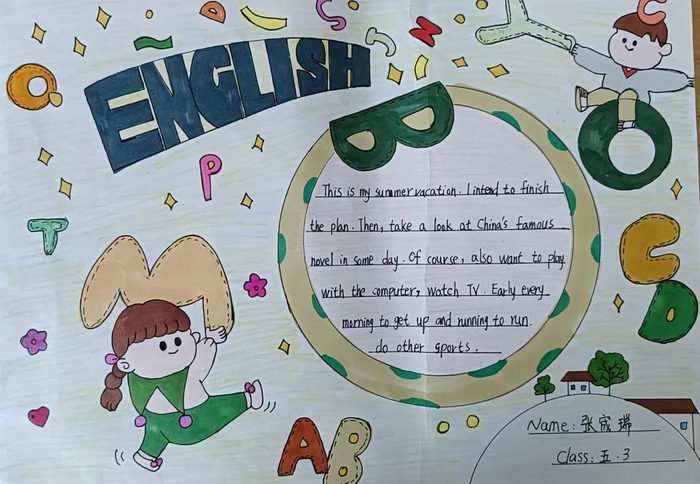 ENGLISH
This is my summer vacation. I intend to finish
the plan. Then, take a look at China's famous
novel in some day. Of course, also want to play
with the computer, watch TV. Early every
morning to get up and running to run.
do other sports.
Name: 张宬瑞
Class: 五.3
Q
S
J
N
Y
C
O
B
P
T
M
C
D
A
B